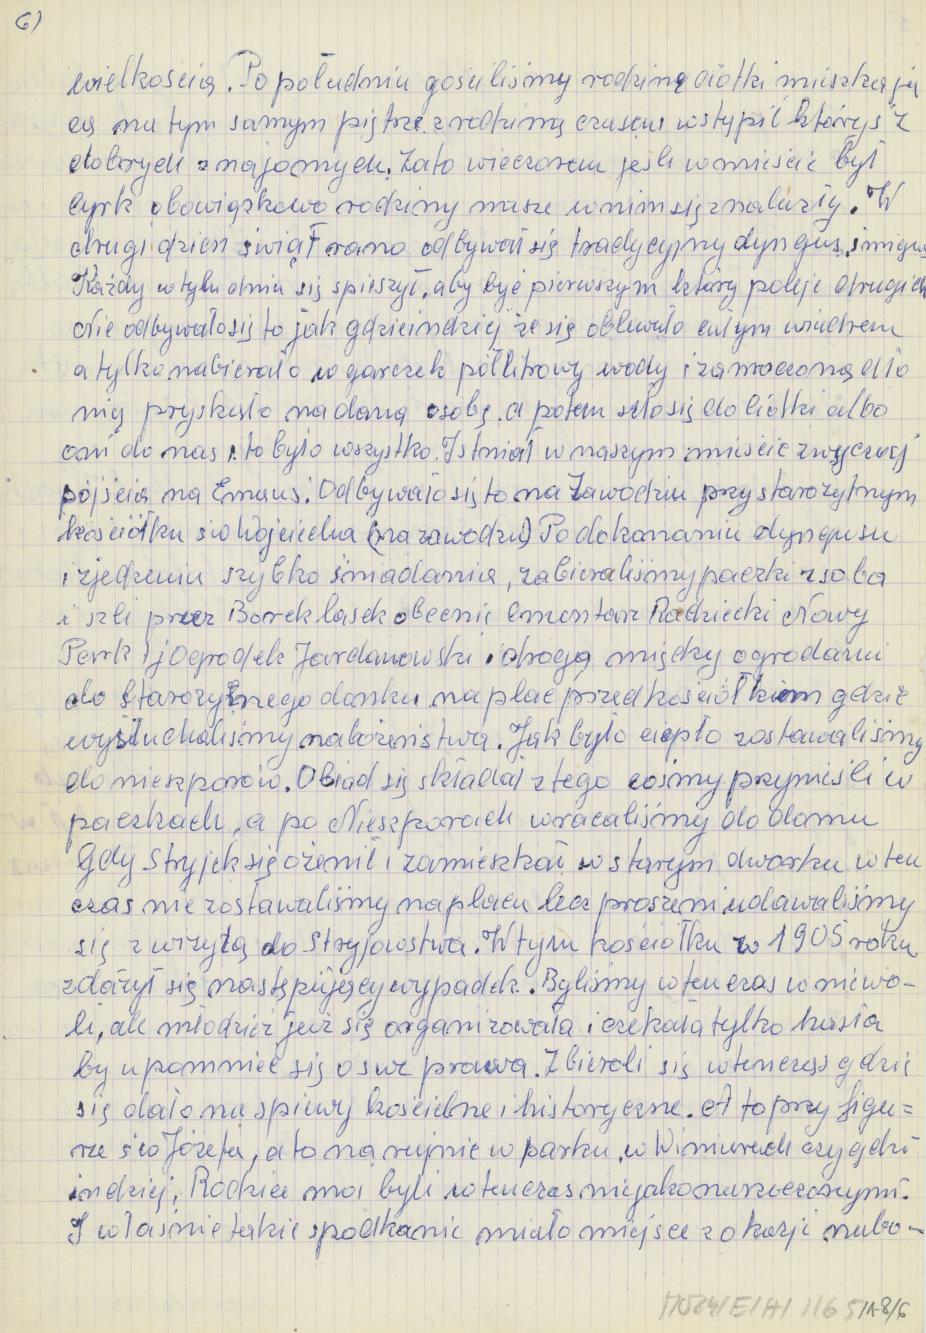 6)
wielkością. Po południu gościliśmy rodzinę ciotki mieszkają
cą na tym samym piętrze z rodziną czasem wstąpił któryś z
dobrych znajomych. Zato wieczorem jeśli w mieście był
cyrk obowiązkowo rodziny nasze w nim się znalazły. W
drugi dzień świąt rano odbywał się tradycyjny dyngus, śmigus
Każdy w tyku dniu się spieszył, aby być pierwszym który poleje drugich
Nie odbywało się to jak gdzieindziej że się oblewało całym wiadrem
a tylko nabierało w garczek półlitrowy wody i zamoczoną dło
nią pryskało na daną osobę. a potem szło się do ciotki albo
oni do nas i to było wszystko. Istniał w naszym mieście zwyczaj
pójścia na Emaus. Odbywało się to na Zawodziu przy starożytnym
kościółku św Wojciecha (na zawodziu) Po dokonaniu dyngusu
i zjedzeniu szybko śniadania, zabieraliśmy paczki z soba
i szli przez Borek lasek obecnie cmentarz Radziecki Nowy
Park i Ogrodek Jordanowski. drogą między ogrodami
do starożytnego danku na plac przed kościółkiem gdzie
wysłuchaliśmy nabożeństwa. Jak było ciepło zostawaliśmy
do nieszporów. Obiad się składał z tego cośmy przynieśli w
paczkach, a po Nieszporach wracaliśmy do domu
Gdy Stryjek się ożenił i zamieszkał w starym dworku w ten
czas nie zostawaliśmy na placu lecz proszeni udawaliśmy
się z wizytą do Stryjowstwa. W tym kościółku w 1905 roku
zdażył się następujęcy wypadek. Byliśmy w ten czas w niewo-
li, ale młodzież już się organizowała i czekała tylko hasła
by upomnieć się o swe prawa. Zbierali się wtenczas gdzie
się dało na spiewy kościelne i historyczne. A to przy figu=
rze św Józefa, a to na rejnie w parku, w Winiarach czy gdzi
indziej, Rodzice moi byli wtenczas niejako narzeczonymi.
I właśnie takie spodkanie miało miejsce z okazji nabo-